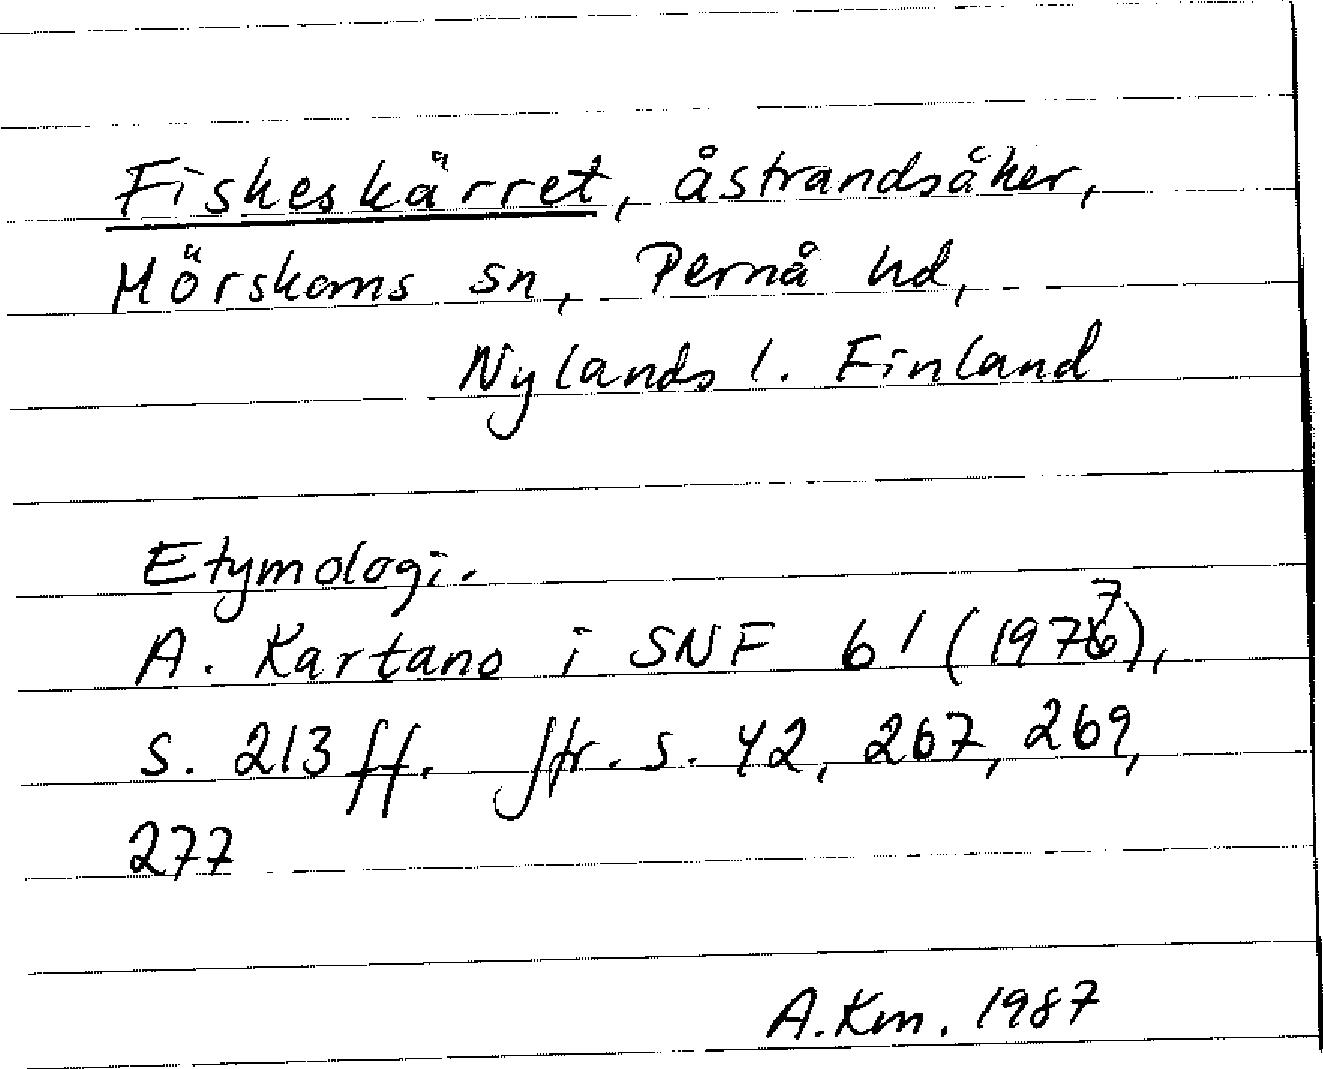 Fiskeskärret, åstrandsåker,
Mörskoms sn, Pernå hd,
Nylands l. Finland
Etymologi.
A. Kartano i SNF 61 (1977),
s. 213 ff. Jfr. s. 42, 267, 269,
277
A.Km. 1987